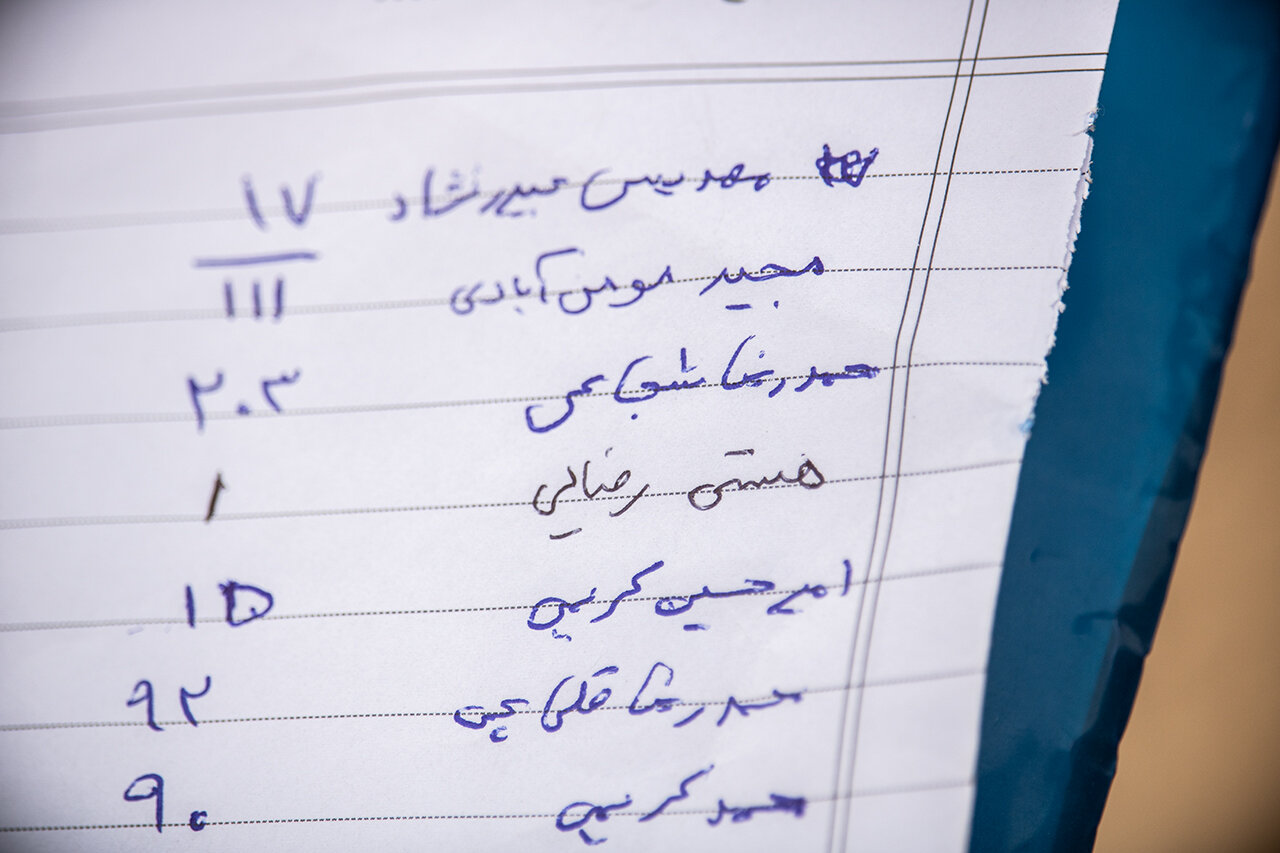 مهدیس حیدرنشاد ۱۷
مجید مومن آبادی ۱۱۱
حمیدرضا شجاعی ۲۰۳
هستی رضائی ۱
امیرحسین کریمی ۱۵
حمیدرضا قلی ۹۲
حمید کریمی ۹۰